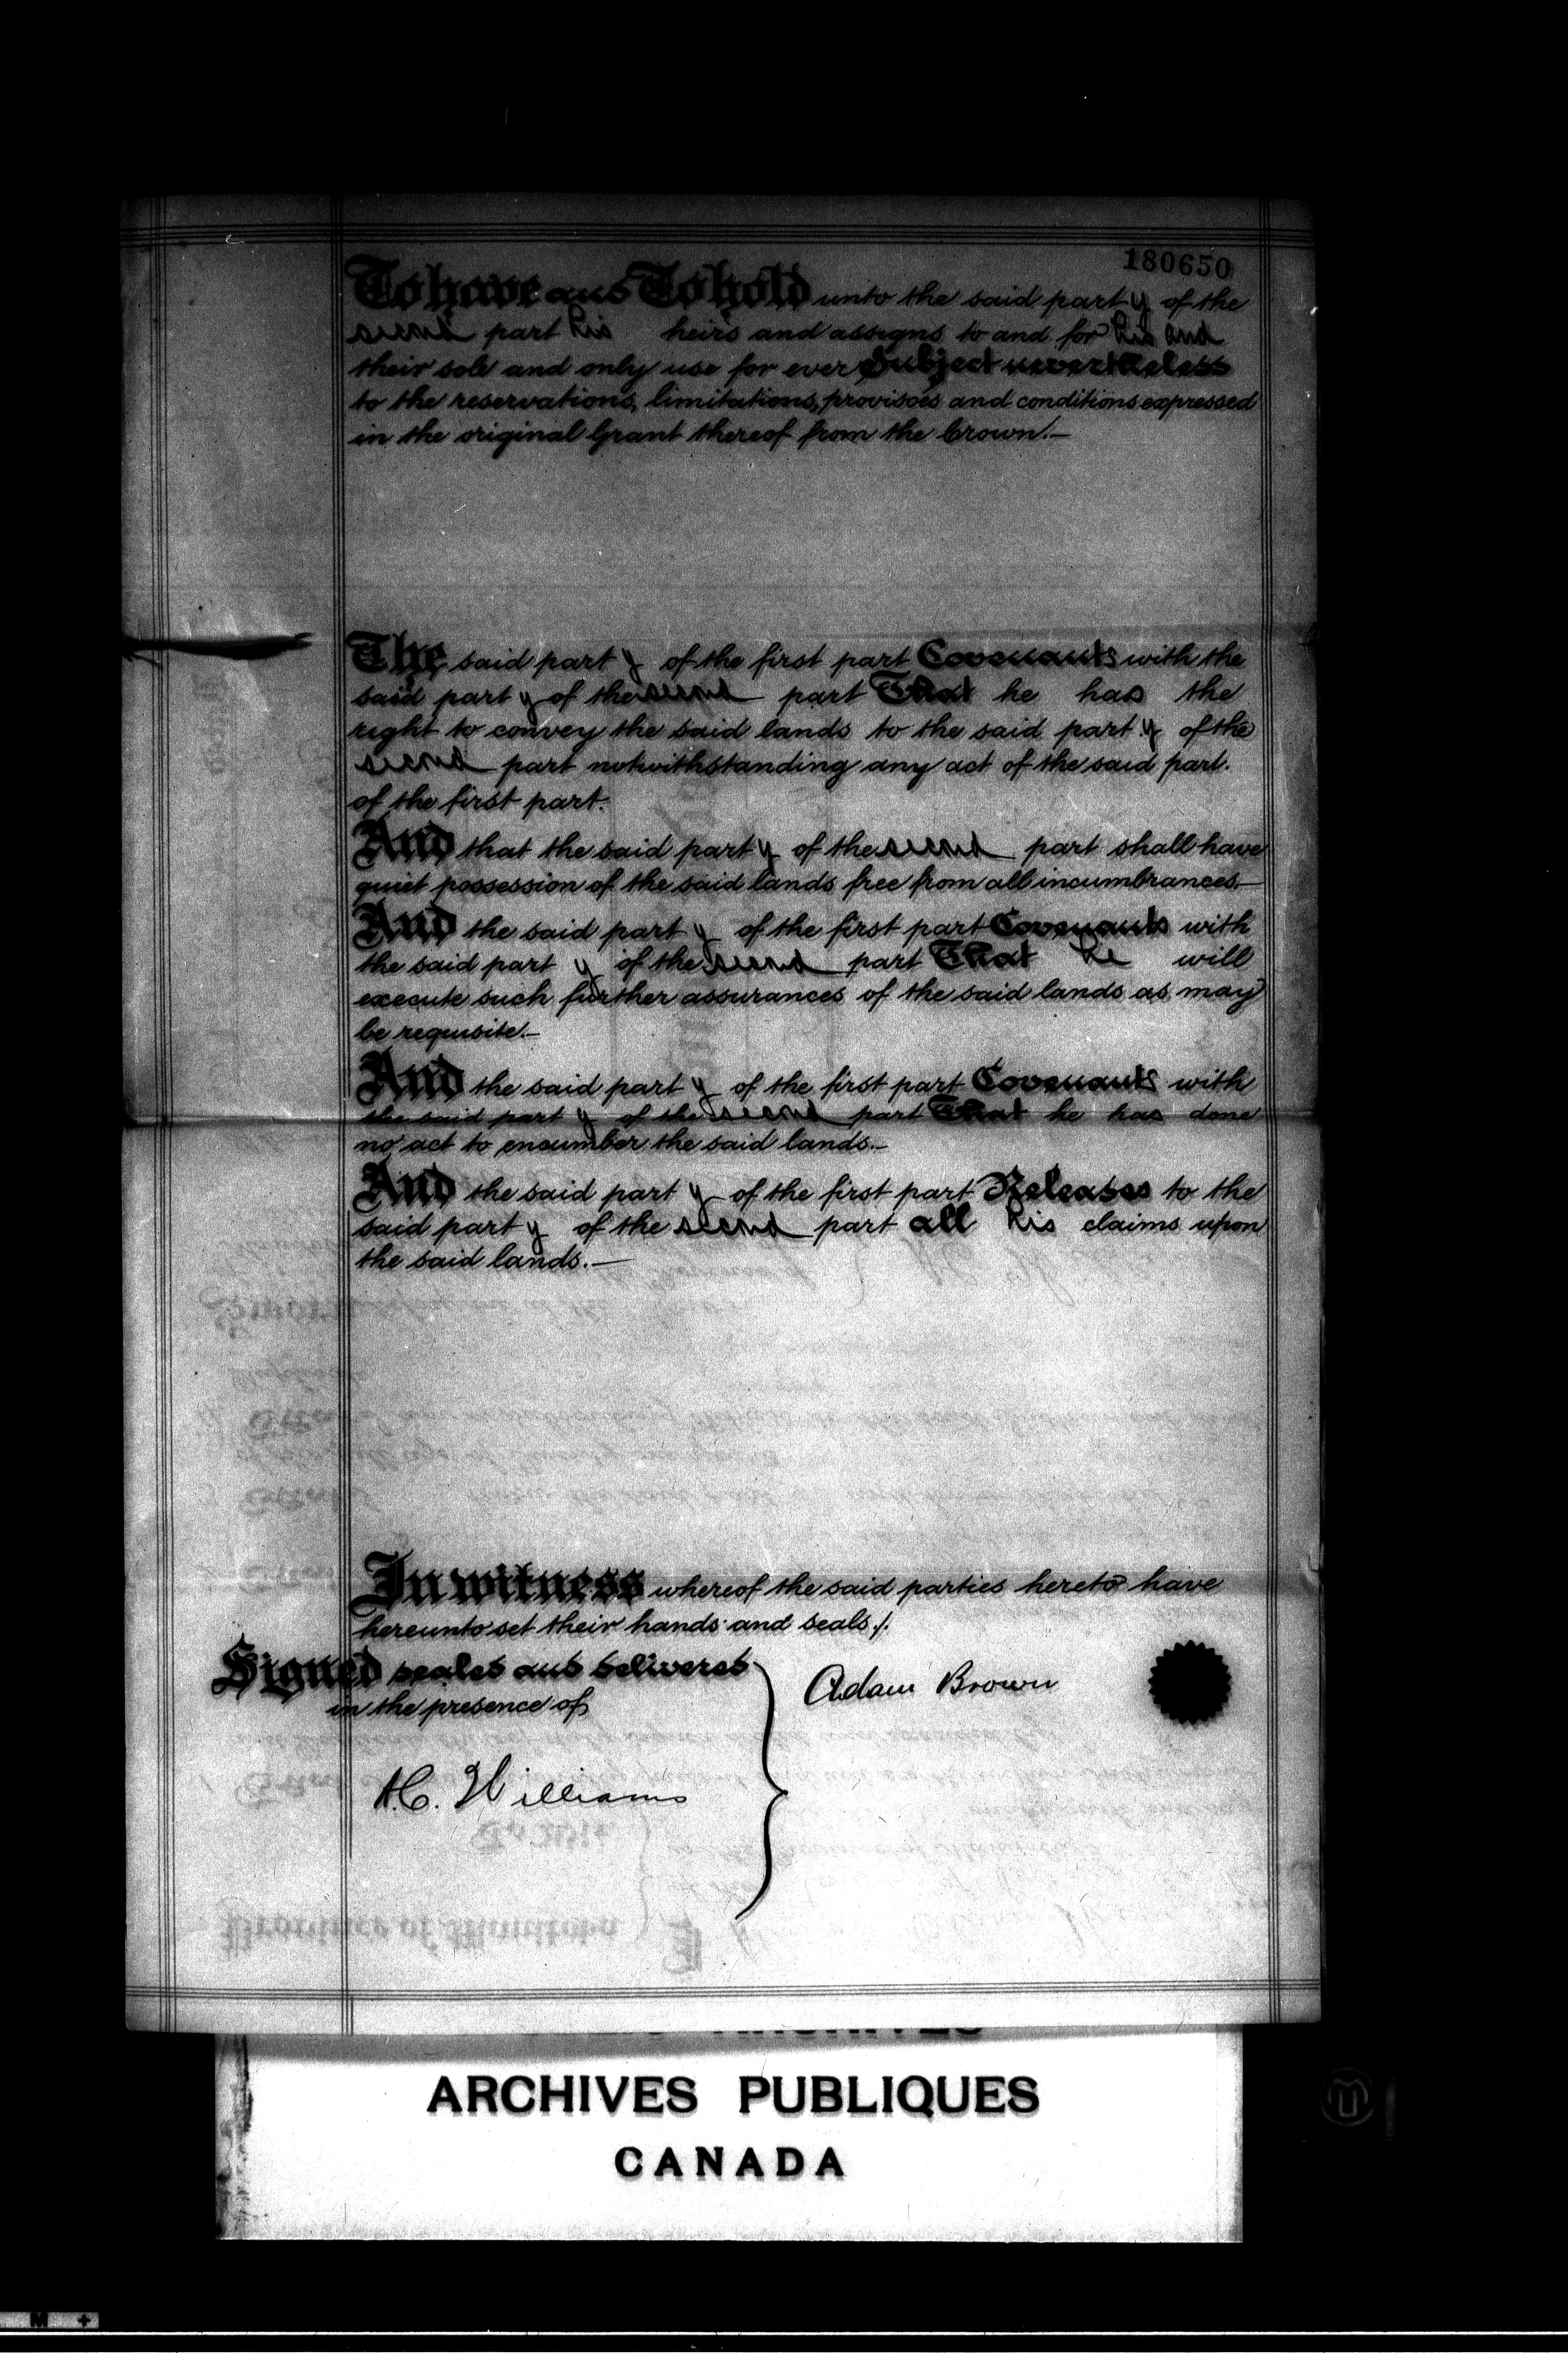 180650
To have and To hold unto the said party of the
second part his heirs and assigns to and for his and
their sole and only use for ever Subject nevertheless
to the reservations, limitations, provisoes and conditions expressed
in the original Grant thereof from the Crown.—
The said party of the first part Covenants with the
said party of the second part That he has the
right to convey the said lands to the said party of the
second part notwithstanding any act of the said part.
of the first part.
And that the said party of the second part shall have
quiet possession of the said lands free from all incumbrances.—
And the said party of the first part Covenants with
the said party of the second part That he will
execute such further assurances of the said lands as may
be requisite.—
And the said party of the first part Covenants with
the said party of the second part That he has done
no act to encumber the said lands.—
And the said party of the first part Releases to the
said party of the second part all his claims upon
the said lands.—
In witness whereof the said parties hereto have
hereunto set their hands and seals./.
Signed sealed and delivered
in the presence of
Adam Brown
A.C. Williams
ARCHIVES PUBLIQUES
CANADA